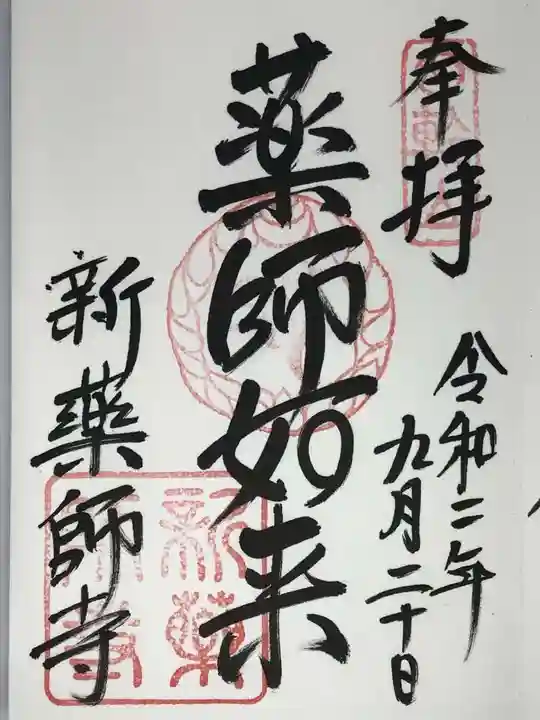 奉拝
令和二年
九月二十日
薬師如来
新薬師寺
新薬
師寺